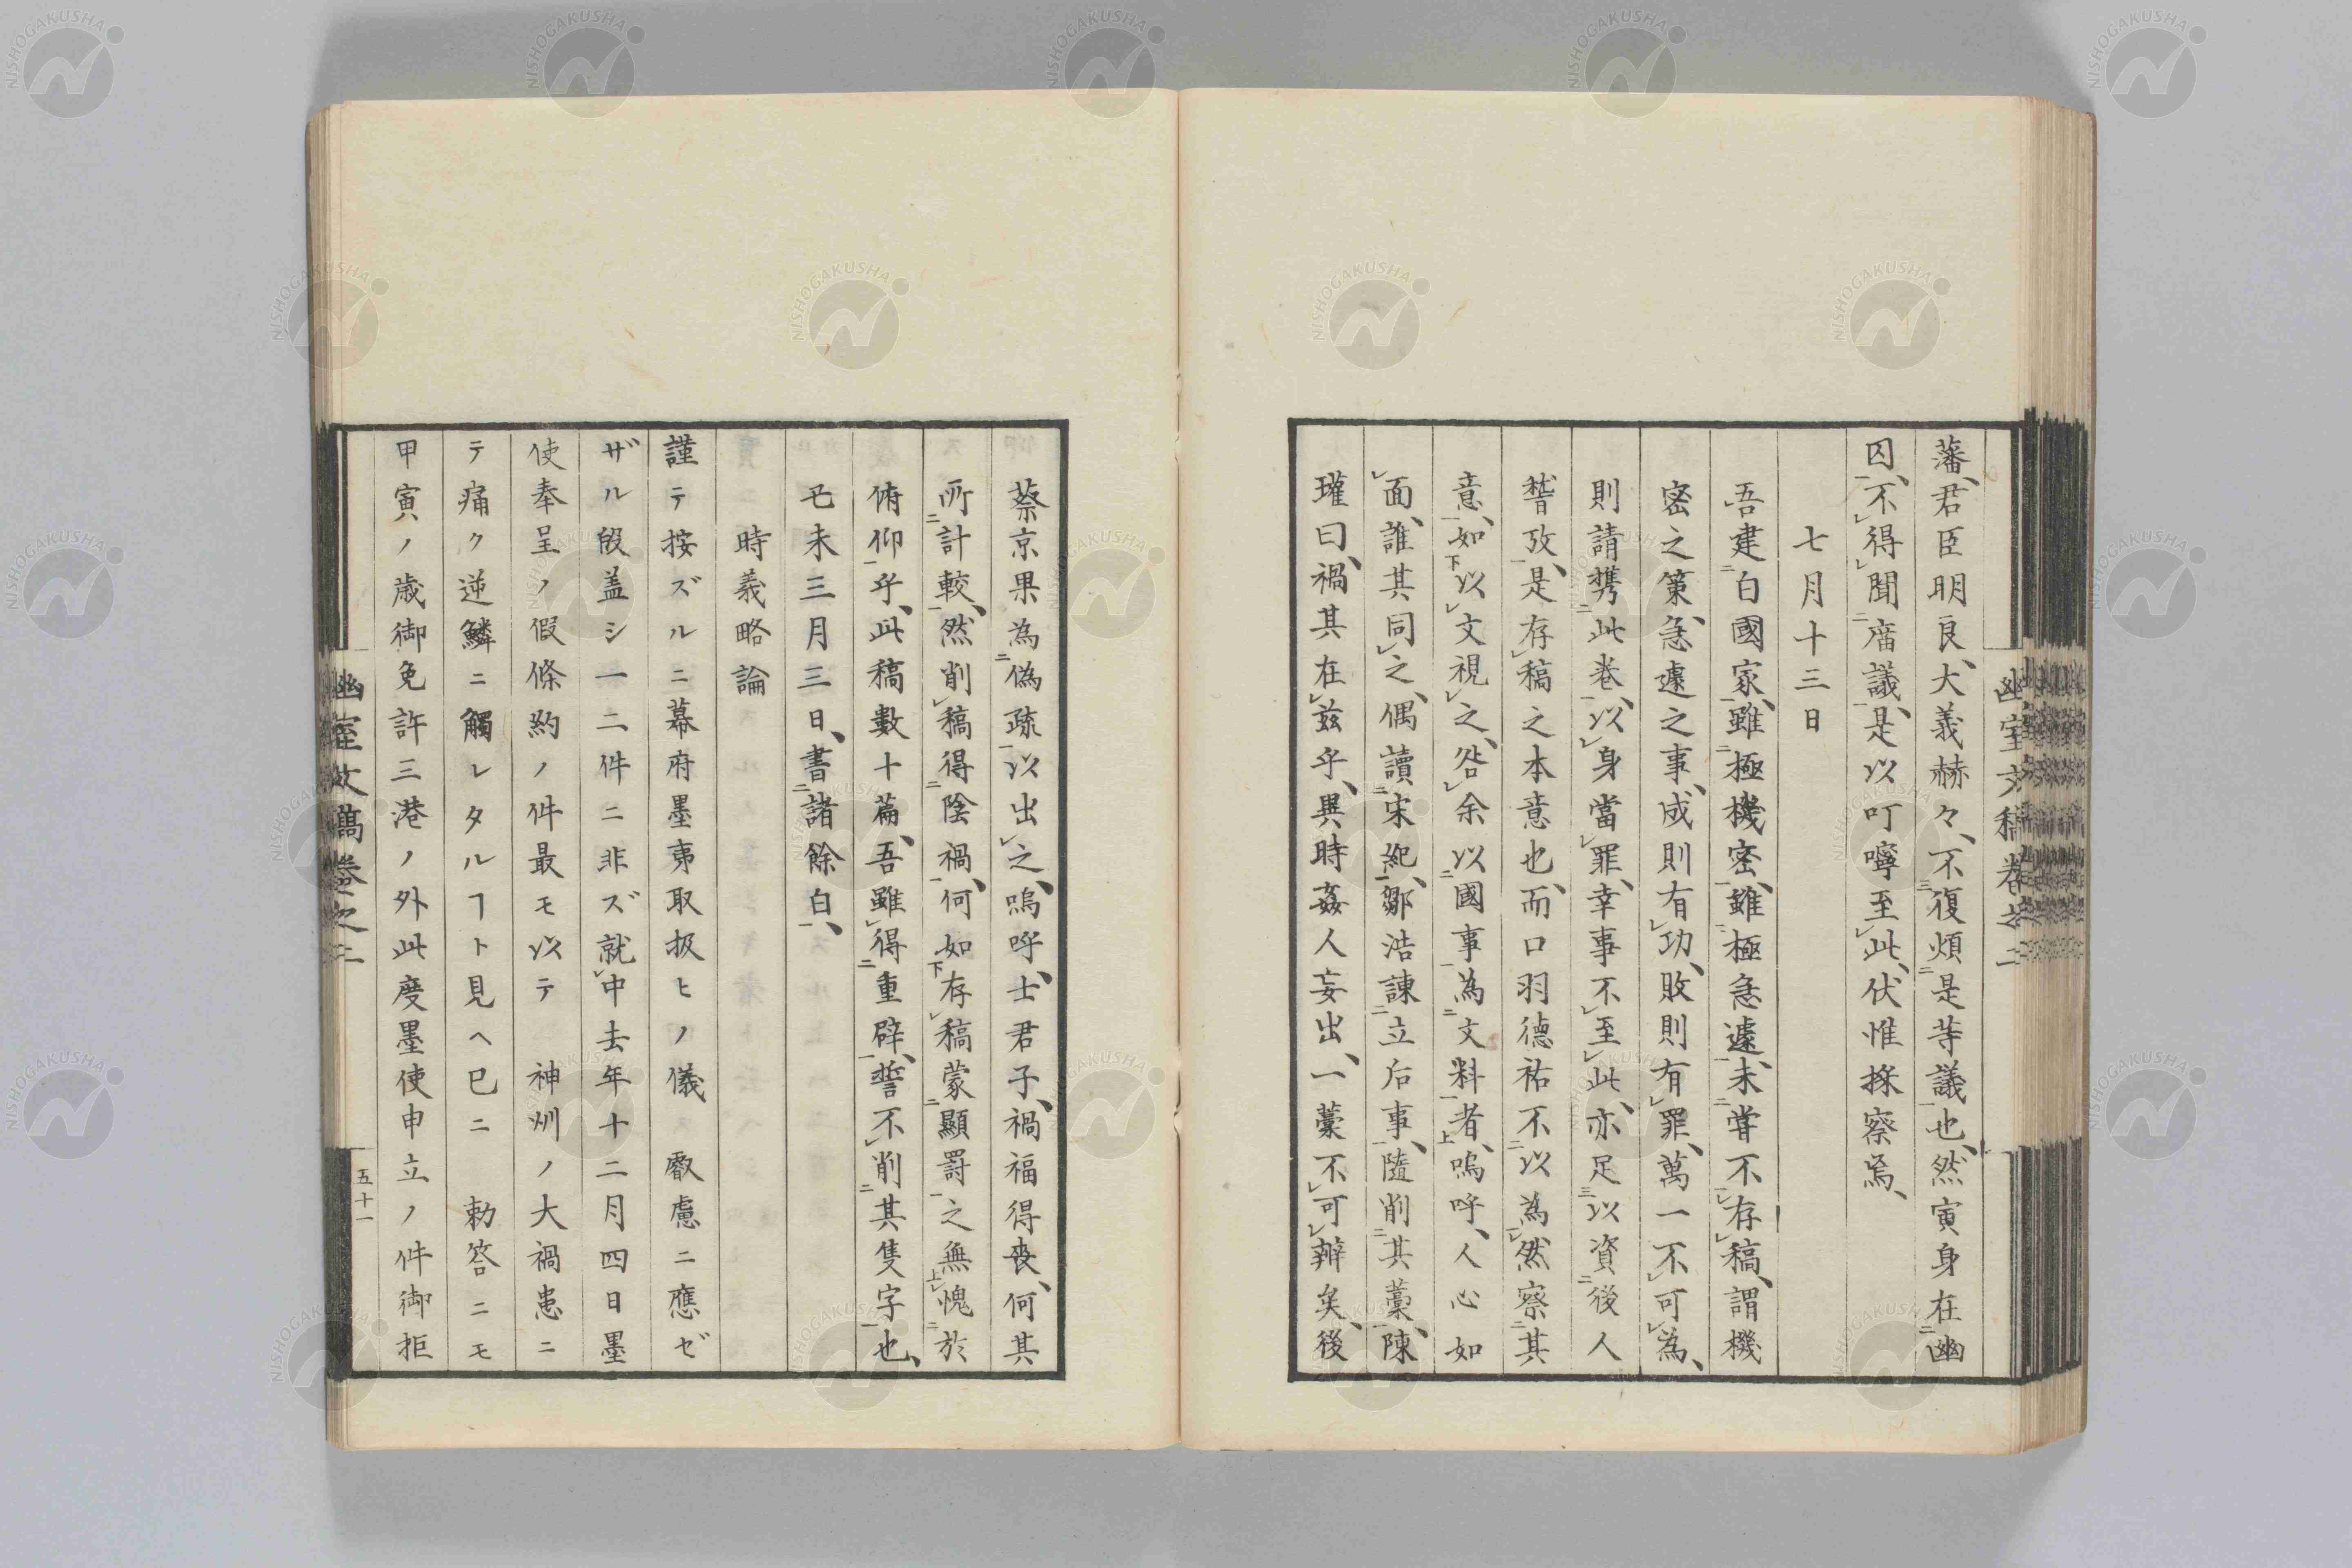 幽室文稿卷之二
藩、君臣明良、大義赫々、不復煩是等議也、然寅身在幽
囚、不得聞廟議、是以叮嚀至此、伏惟採察焉、
七月十三日
吾建白國家、雖極機密、雖極急遽、未嘗不存稿、謂機
密之策、急遽之事、成則有功、敗則有罪、萬一不可為、
則請携此卷、以身當罪、幸事不至此、亦足以資後人
稽攷、是存稿之本意也、而口羽德祐不以為然、察其
意、如以文視之、咎余以國事為文料者、嗚呼、人心如
面、誰其同之、偶讀宋紀、鄒浩諫立后事、隨削其藁、陳
瓘曰、禍其在茲乎、異時姦人妄出、一藁不可辨矣、後
蔡京果為偽疏以出之、嗚呼、士君子、禍福得喪、何其
所計較、然削稿得陰禍、何如存稿蒙顯罸之無愧於
俯仰乎、此稿數十篇、吾雖得重辟、誓不削其隻字也、
己未三月三日、書諸餘白、
時義略論
謹テ按ズルニ幕府墨夷取扱ヒノ儀　叡慮ニ應ゼ
ザル段盖シ一二件ニ非ズ就中去年十二月四日墨
使奉呈ノ假條約ノ件最モ以テ　神州ノ大禍患ニ
テ痛ク逆鱗ニ觸レタルヿト見ヘ已ニ　勅答ニモ
甲寅ノ歳御免許三港ノ外此度墨使申立ノ件御拒
幽室文稿卷之二
五十一